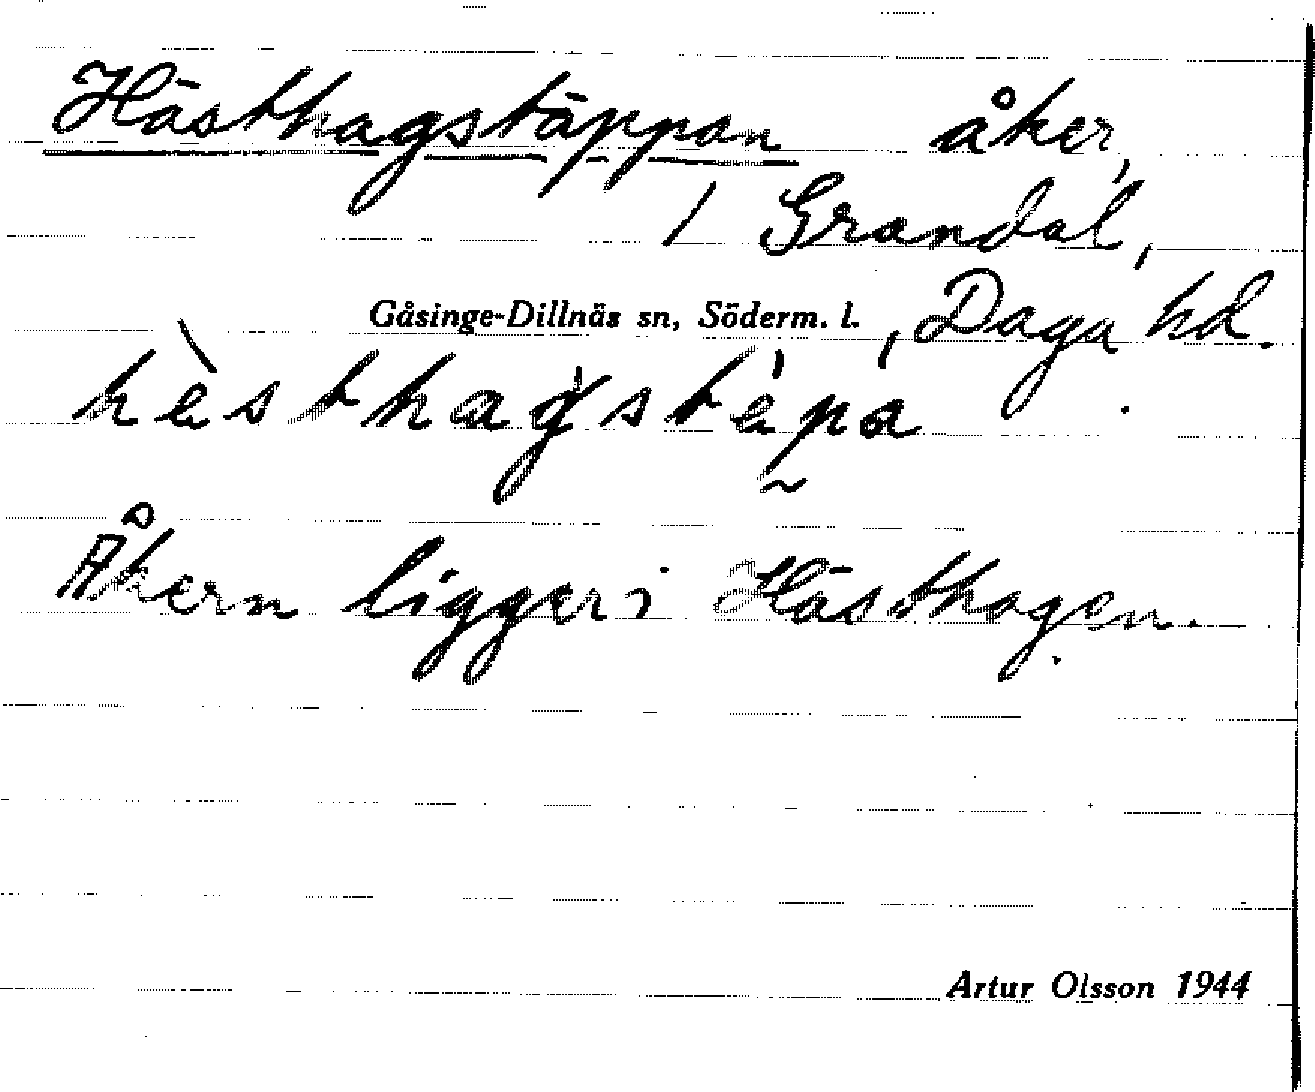 Hästhagstäppan åker,
/ Grandal,
Gåsinge-Dillnäs sn, Söderm. l., Daga hd.
hὲsthagstèpa
Åkern ligger i Hästhagen.
Artur Olsson 1944